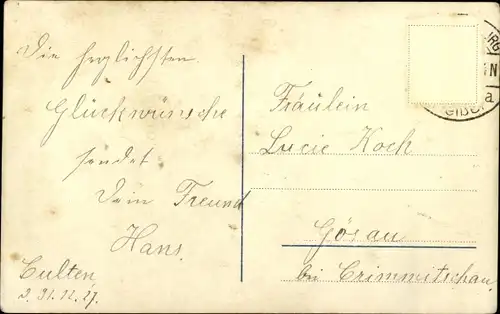 Die herzlichsten
Glückwünsche
sendet
Dein Freund
Hans.
Culten,
d. 31.12.27.
Fräulein
Lucie Koch
Gösau
bei Crimmitschau.